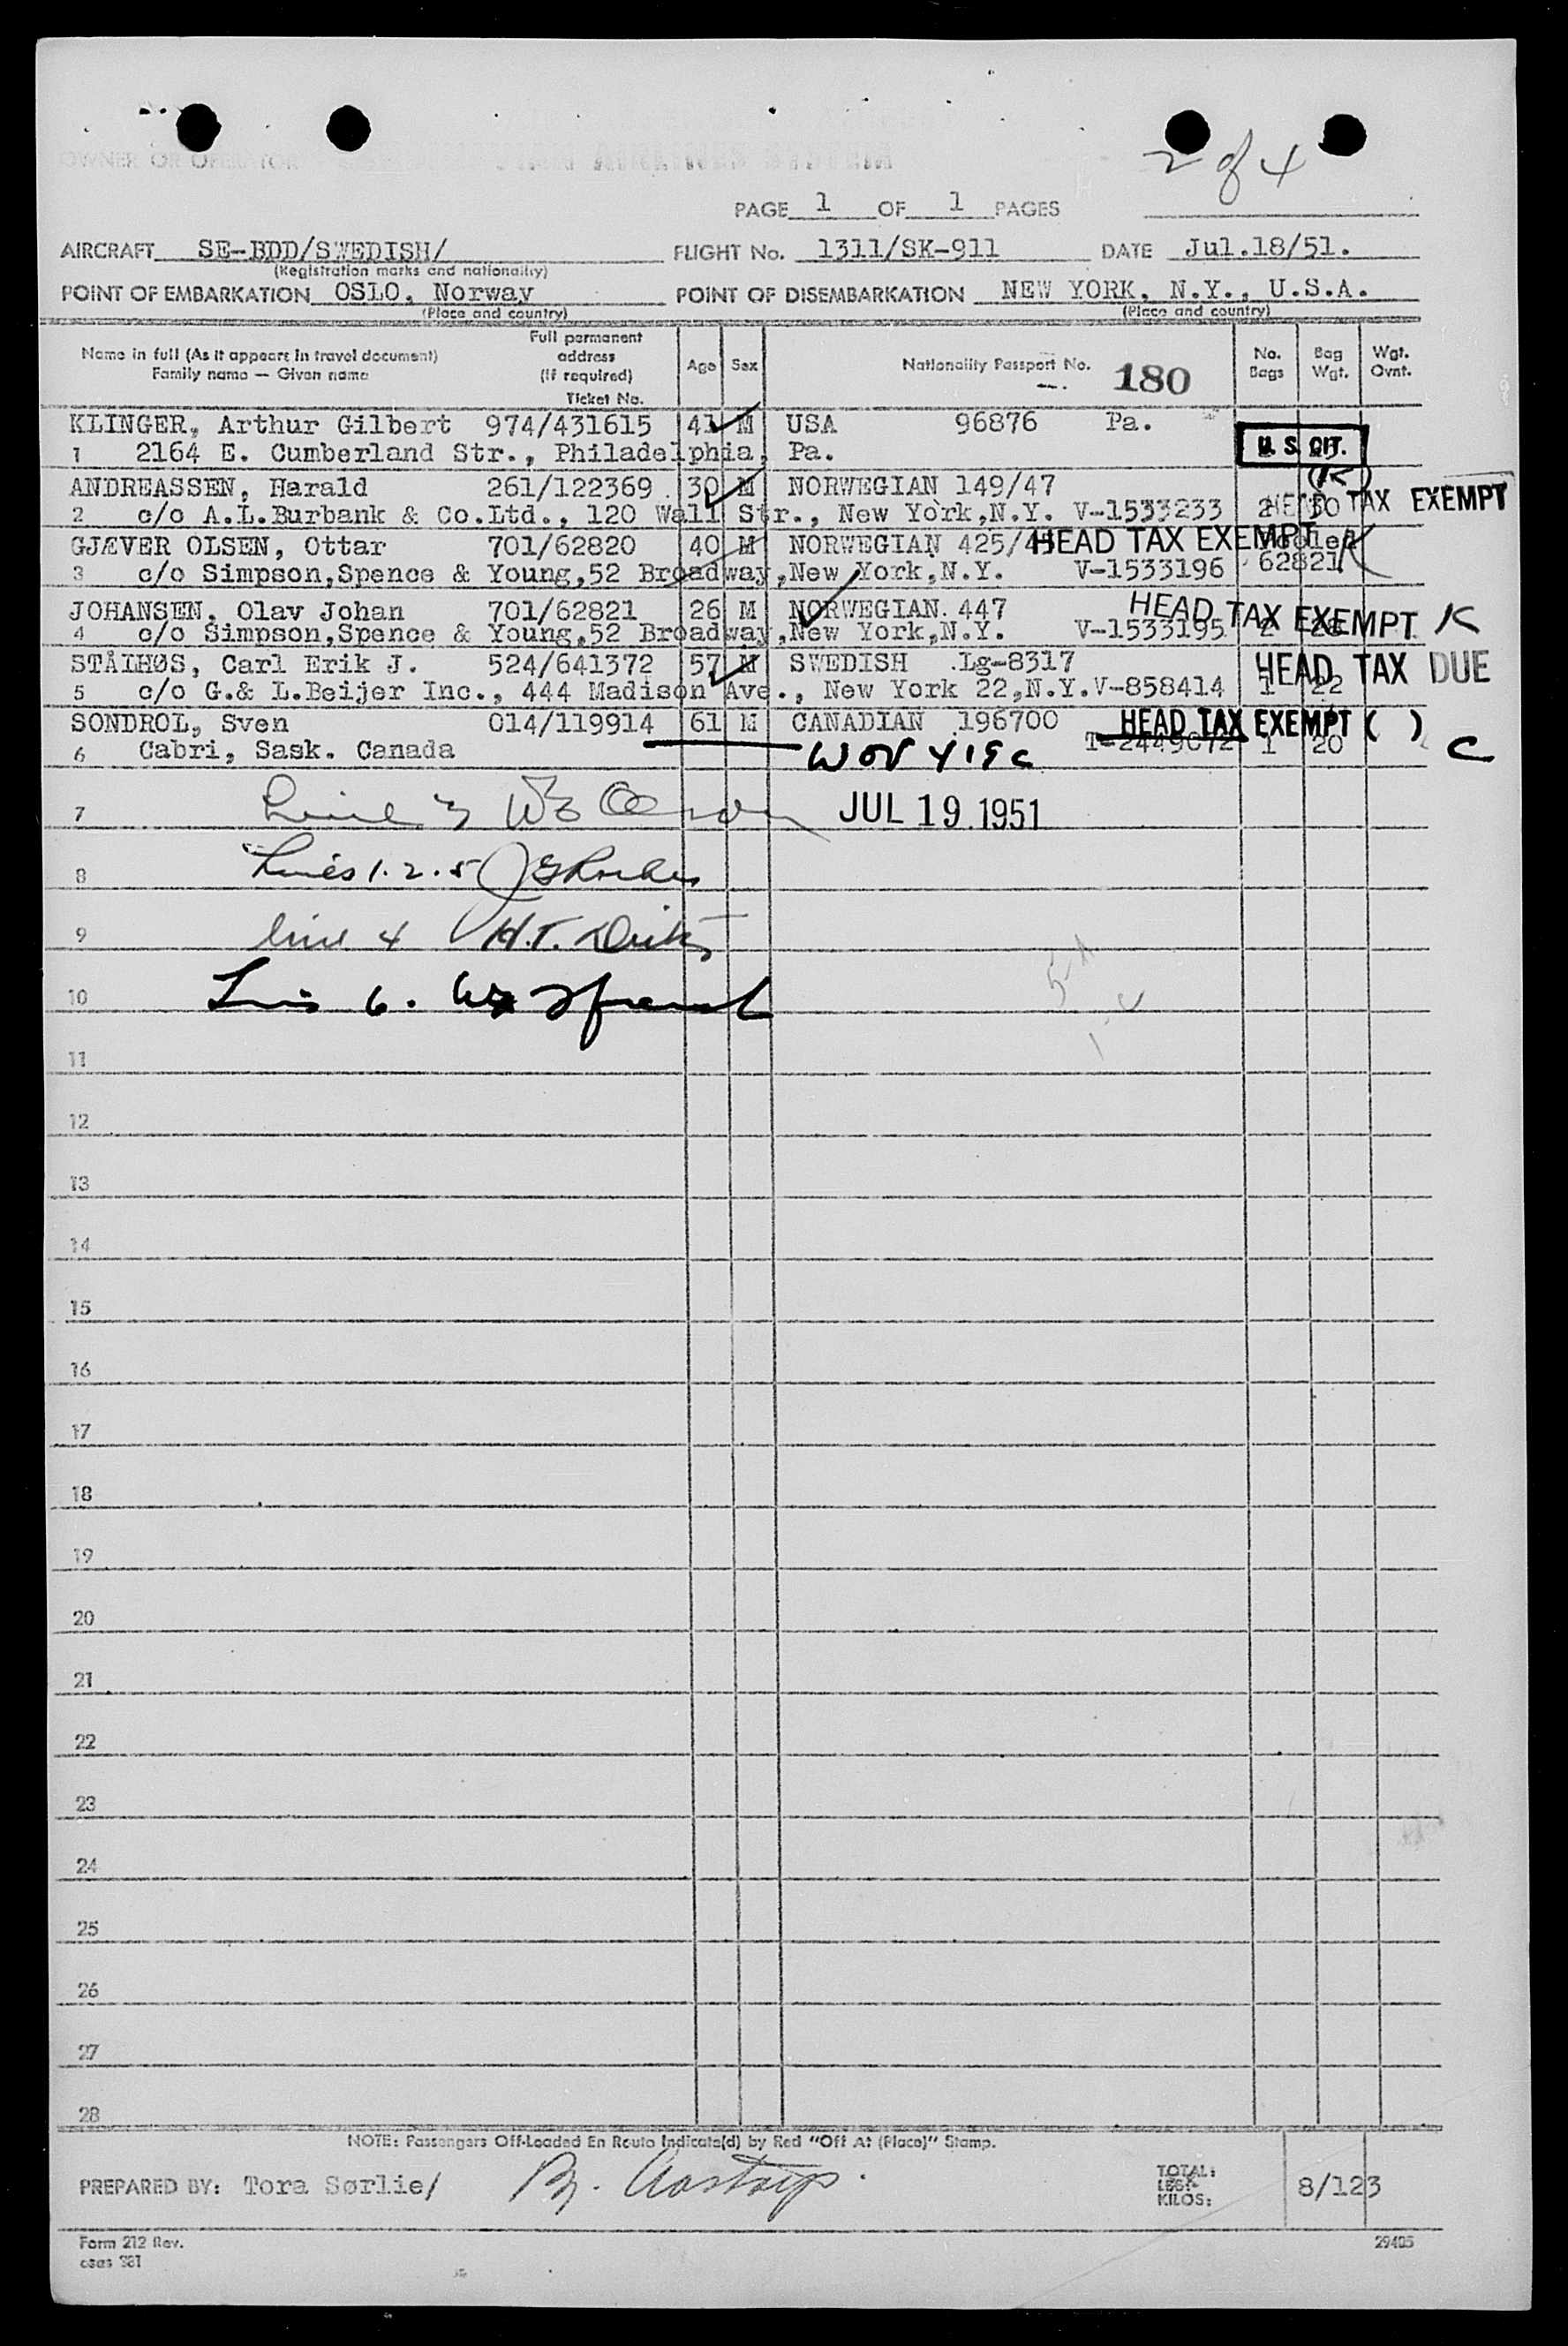 OWNER OR OPERATOR
2 of 4
PAGE 1 OF 1 PAGES
AIRCRAFT SE-BDD/SWEDISH/ FLIGHT No. 1311/SK-911 DATE Jul.18/51.
(Registration marks and nationality)
POINT OF EMBARKATION OSLO, Norway POINT OF DISEMBARKATION NEW YORK, N.Y., U.S.A.
(Place and country) (Place and country)
Name in full (As it appears in travel document) Family name — Given name
Full permanent address (If required) Ticket No.
Age Sex Nationality Passport No. 180 No. Bags Bag Wgt. Wgt. Ovnt.
KLINGER, Arthur Gilbert 974/431615 41 M USA 96876 Pa.
1 2164 E. Cumberland Str., Philadelphia, Pa. U. S. CIT.
(K)
ANDREASSEN, Harald 261/122369 30 M NORWEGIAN 149/47 HEAD TAX EXEMPT
2 c/o A.L.Burbank & Co.Ltd., 120 Wall Str., New York,N.Y. V-1533233 2 30
GJÆVER OLSEN, Ottar 701/62820 40 M NORWEGIAN 425/45 HEAD TAX EXEMPT K
3 c/o Simpson,Spence & Young,52 Broadway,New York,N.Y. V-1533196 62821
JOHANSEN, Olav Johan 701/62821 26 M NORWEGIAN. 447 HEAD TAX EXEMPT K
4 c/o Simpson,Spence & Young,52 Broadway,New York,N.Y. V-1533195 2
STÅLHØS, Carl Erik J. 524/641372 57 M SWEDISH Lg-8317 HEAD TAX DUE
5 c/o G.& L.Beijer Inc., 444 Madison Ave., New York 22,N.Y.V-858414 1 22
SONDROL, Sven 014/119914 61 M CANADIAN 196700 HEAD TAX EXEMPT ( )
6 Cabri, Sask. Canada T-2449672 1 20 C
7 Line 3 JUL 19 1951
8 Lines 1.2.5
9 line 4 H.T.
10 6.
11
12
13
14
15
16
17
18
19
20
21
22
23
24
25
26
27
28
NOTE: Passengers Off-Loaded En Route Indicate(d) by Red "Off At (Place)" Stamp.
PREPARED BY: Tora Sørlie/
TOTAL: LBS: KILOS: 8/123
Form 212 Rev. 29405